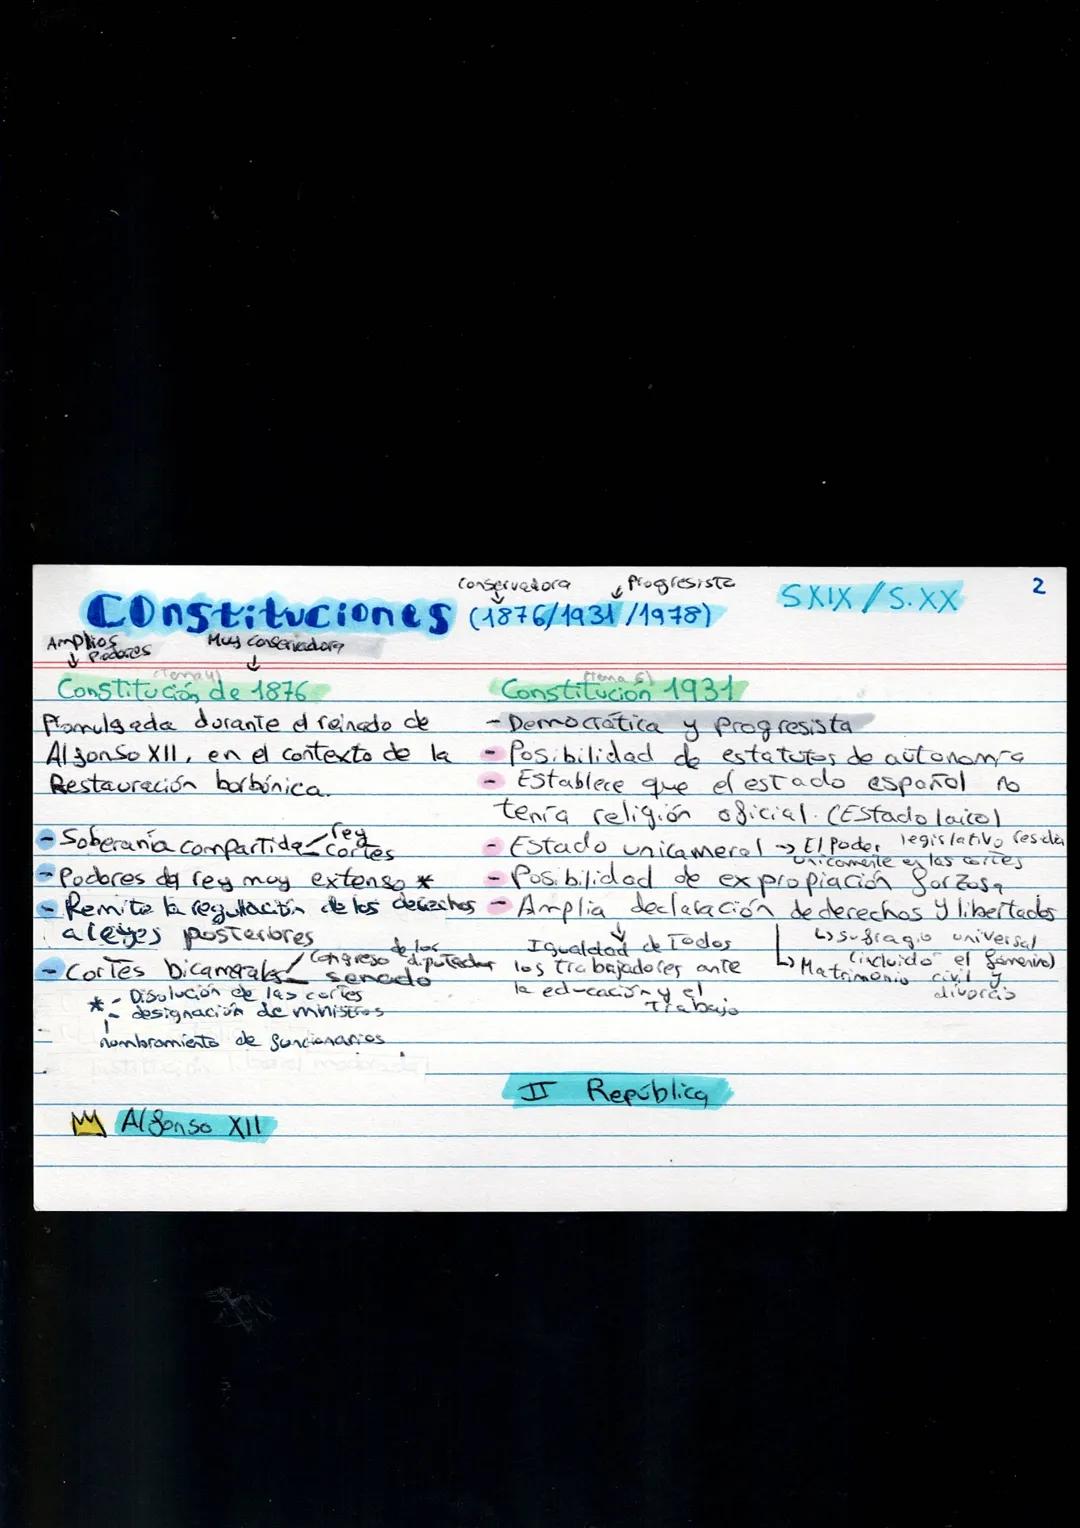 Conservadora Progresista
Constituciones (1876/1931/1978) SXIX/S.XX 2
Amplios Poderes
Muy conservadora
(Tema 4)
Constitución de 1876
Promulgada durante el reinado de
Alfonso XII, en el contexto de la
Restauración borbónica.
- Soberanía compartida rey
cortes
- Poderes del rey muy extenso *
- Remite la regulación de los derechos
a leyes posteriores
- Cortes bicamerales Congreso de los diputados
senado
* - Disolución de las cortes
- designación de ministros
nombramiento de funcionarios
Alfonso XII
(Tema 6)
Constitución 1931
- Democrática y Progresista
- Posibilidad de estatutos de autonomía
- Establece que el estado español no
tenía religión oficial. (Estado laico)
- Estado unicameral → El Poder legislativo residía
unicamente en las cortes
- Posibilidad de expropiación forzosa
- Amplia declaración de derechos y libertades
Igualdad de Todos
los trabajadores ante
la educación y el
Trabajo
↳ sufragio universal
(incluido el femenino)
↳ Matrimonio civil y
divorcio
II República